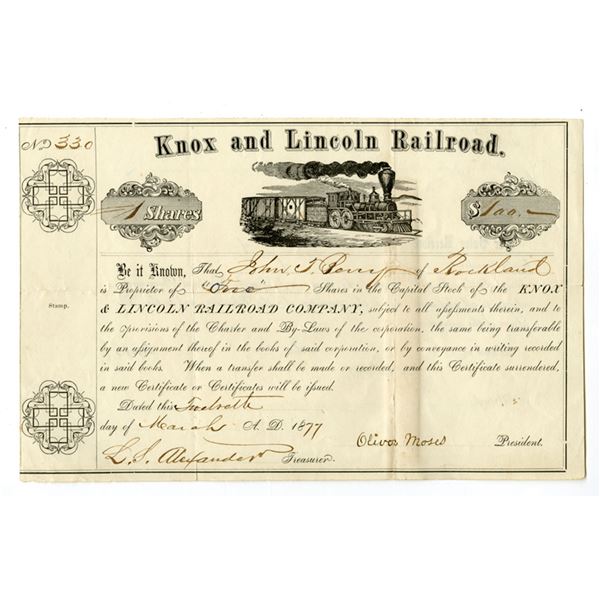 No 330
Knox and Lincoln Railroad.
1 Shares
$ 100.
Be it Known, That John T. Berry of Rockland
is Proprietor of "One" Shares in the Capital Stock of the KNOX
& LINCOLN RAILROAD COMPANY, subject to all aſseſsments therein, and to
the provisions of the Charter and By-Laws of the corporation, the same being transferable
by an aſsignment thereof in the books of said corporation, or by conveyance in writing recorded
in said books. When a transfer shall be made or recorded, and this Certificate surrendered,
a new Certificate or Certificates will be iſsued.
Stamp.
Dated this Twelveth
day of March A. D. 1877
Oliver Moses President.
L. S. Alexander Treasurer.